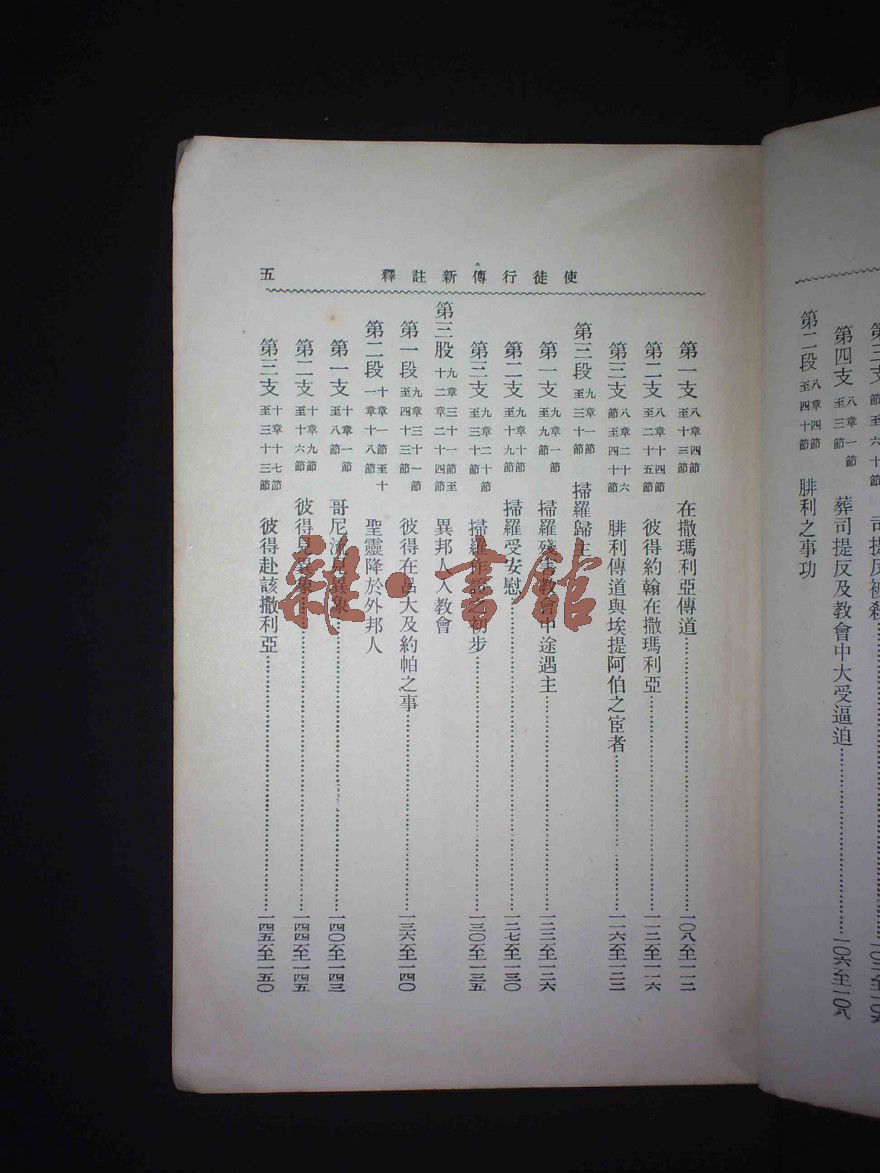 第三支 節至六十 司提反被殺
第四支 八章一節至三節 葬司提反及教會中大受逼迫……一〇六至一〇八
第二段 八章四節至四十節 腓利之事功
使徒行傳新註釋 五
第一支 八章四節至十三節 在撒瑪利亞傳道……一〇八至一一二
第二支 八章十四節至二十五節 彼得約翰在撒瑪利亞……一一二至一一六
第三支 八章二十六節至四十節 腓利傳道與埃提阿伯之宦者……一一六至一二二
第三段 九章一節至三十節 掃羅歸主
第一支 九章一節至九節 掃羅殘害教會中途遇主……一二二至一二六
第二支 九章十節至十九節 掃羅受安慰……一二七至一三〇
第三支 九章二十節至三十節 掃羅作證之初步……一三〇至一三五
第三股 九章三十一節至十二章二十四節 異邦人入教會
第一段 九章三十一節至四十三節 彼得在呂大及約帕之事……一三六至一四〇
第二段 十章一節至十一章十八節 聖靈降於外邦人
第一支 十章一節至八節 哥尼流見異象……一四〇至一四三
第二支 十章九節至十六節 彼得見異象……一四四至一四五
第三支 十章十七節至三十三節 彼得赴該撒利亞……一四五至一五〇
雜·書館